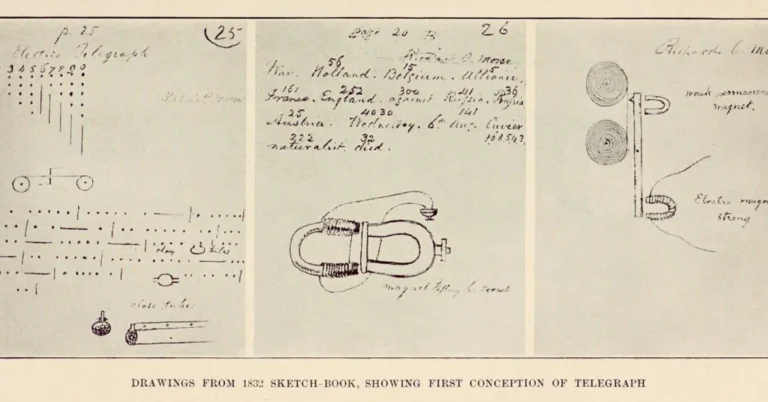 p. 25
25
Electric Telegraph
3 4 5 6 7 8 9 0
clay tubes
close tubes
Page 26
26
56 15 5
War. Holland. Belgium. Alliance.
161 252 304 211 36
France. England. against Russia. Prussia
25 4030 141
Austria. Wednesday. 6th Aug. Cuvier
222 32
naturalist. died.
magnet
Richard C. M
weak permanent
magnet.
Electro magn
strong
DRAWINGS FROM 1832 SKETCH-BOOK, SHOWING FIRST CONCEPTION OF TELEGRAPH